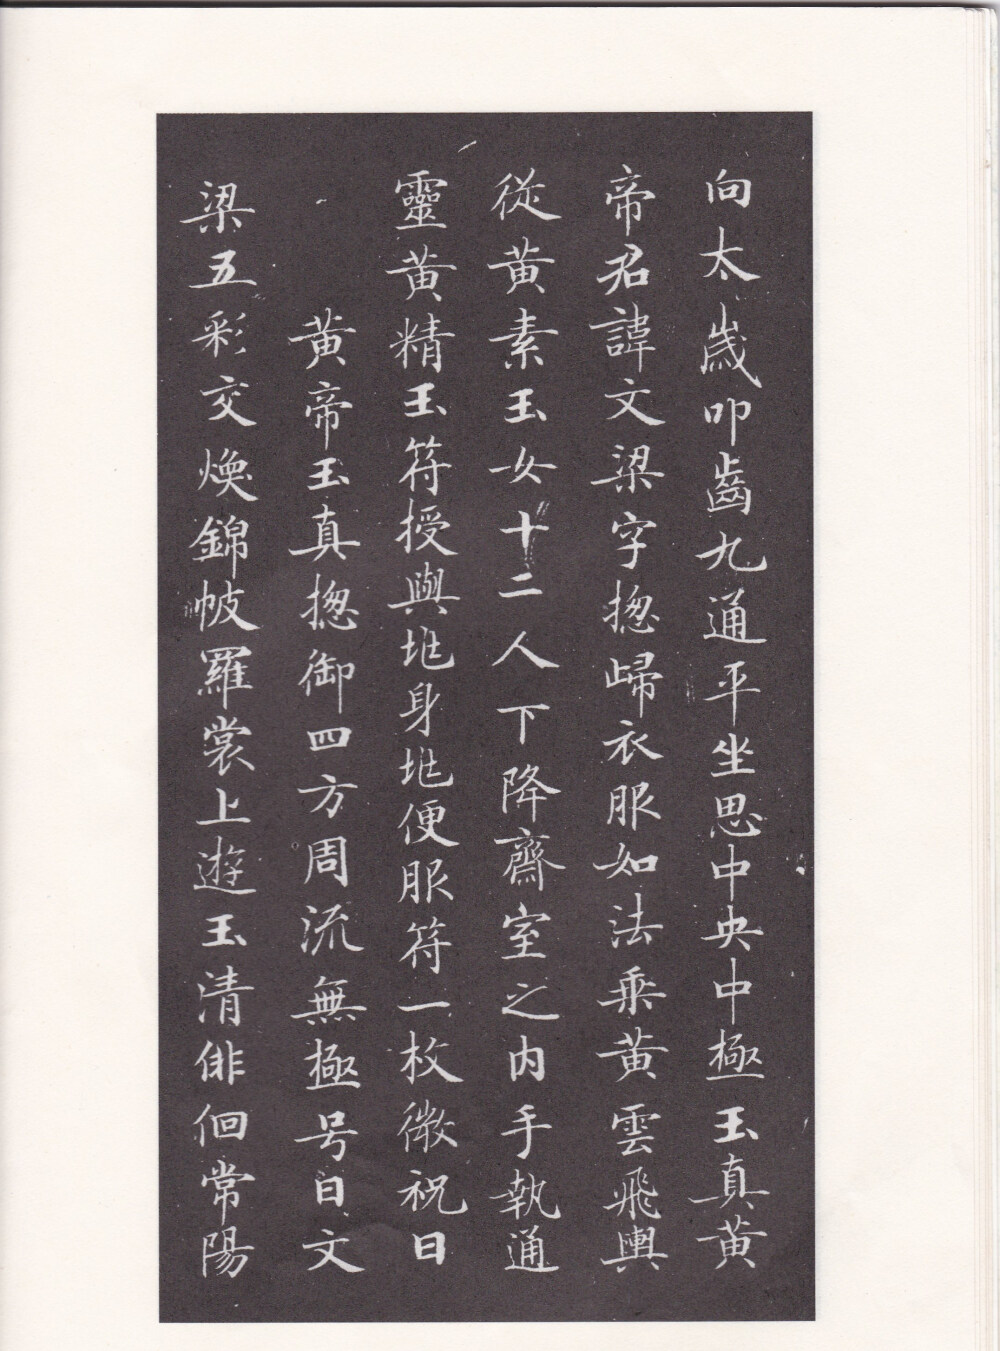 向太歲叩齒九通平坐思中央中極玉真黃
帝君諱文梁字揔歸衣服如法乘黃雲飛輿
從黃素玉女十二人下降齋室之內手執通
靈黃精玉符授與地身地便服符一枚微祝曰
黃帝玉真揔御四方周流無極号曰文
梁五彩交煥錦帔羅裳上遊玉清俳佪常陽